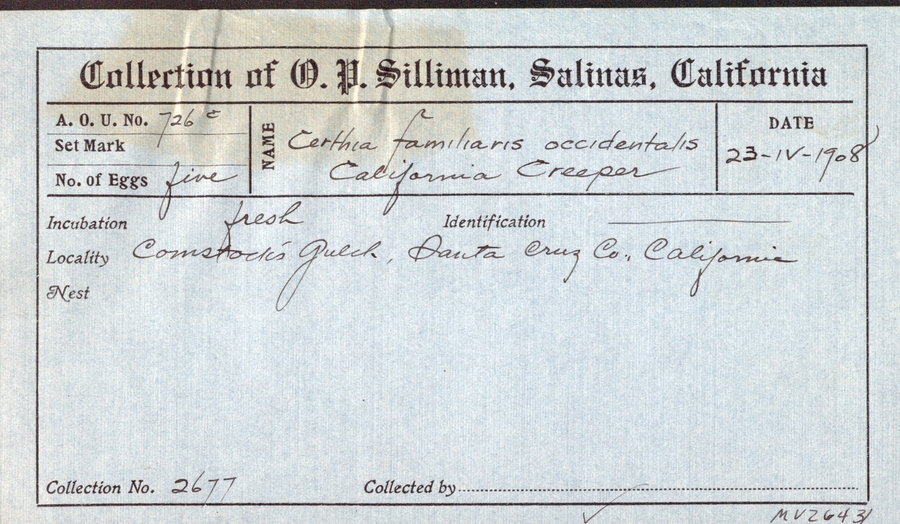 Collection of O. P. Silliman, Salinas, California
A. O. U. No. 726 c
Set Mark
No. of Eggs five
NAME
Certhia familiaris occidentalis
California Creeper
DATE
23-IV-1908
Incubation fresh
Identification
Locality Comstock's Gulch, Santa Cruz Co., California
Nest
Collection No. 2677
Collected by
MVZ6431